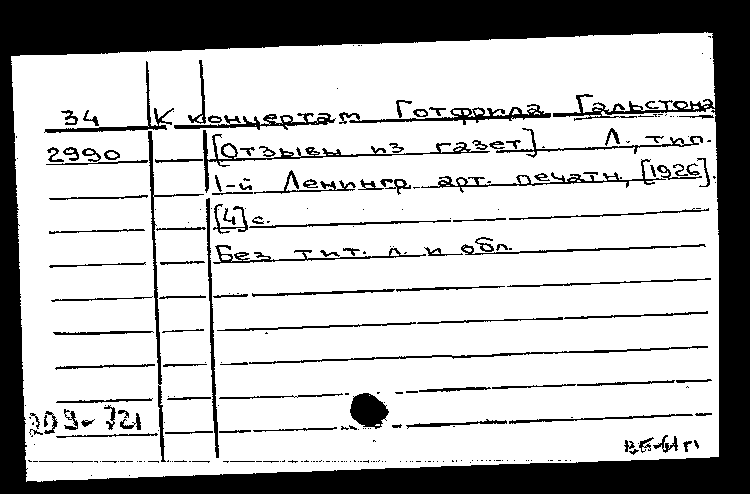 34 К концертам Готфрида Гальстона
2990 [Отзывы из газет]. Л., тип.
1-й Ленингр. арт. печатн., [1926].
[4] с.
Без тит. л. и обл.
209-721